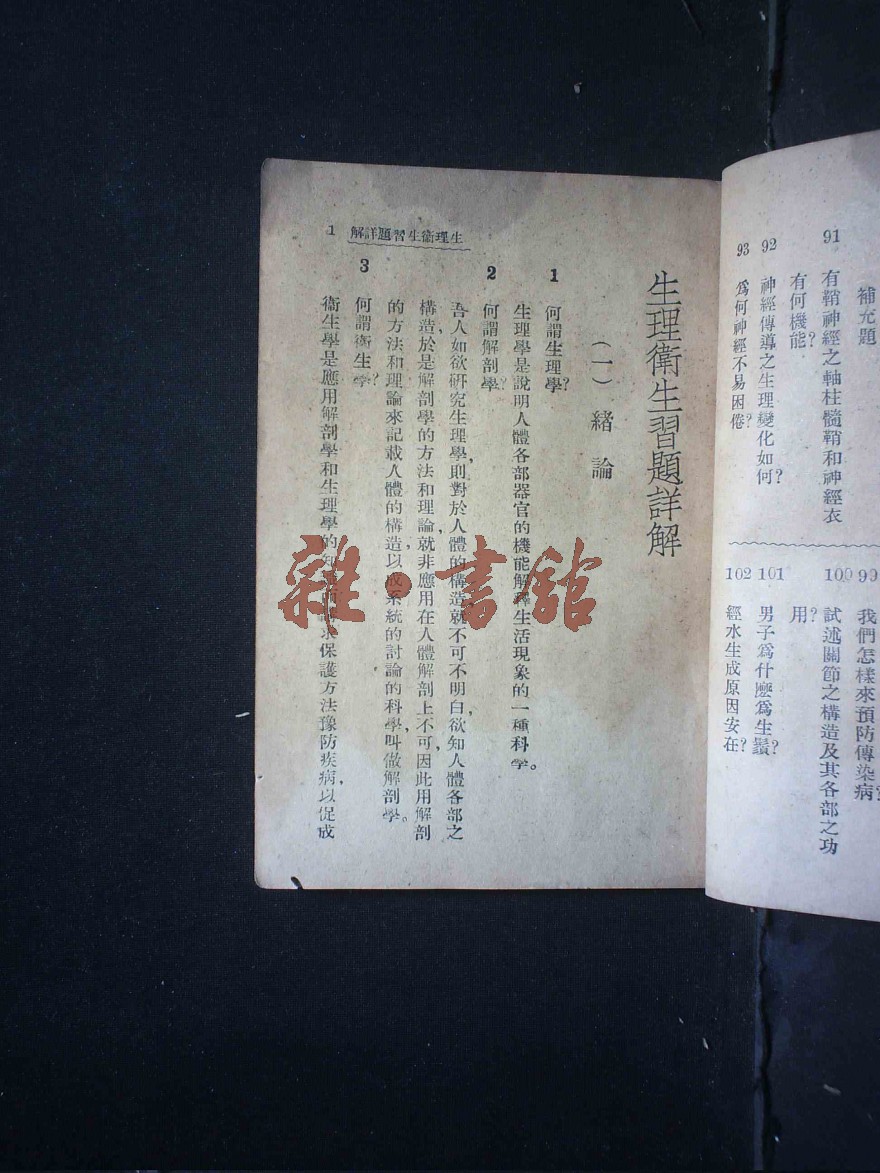 補充題
91 有鞘神經之軸柱髓鞘和神經衣
有何機能?
92 神經傳導之生理變化如何?
93 爲何神經不易困倦?
99 我們怎樣來預防傳染病
100 試述關節之構造及其各部之功
用?
101 男子爲什麽爲生鬚?
102 經水生成原因安在?
生理衞生習題詳解
(一) 緒論
1 何謂生理學?
生理學是說明人體各部器官的機能解釋生活現象的一種科學。
2 何謂解剖學?
吾人如欲硏究生理學,則對於人體的構造就不可不明白,欲知人體各部之
構造,於是解剖學的方法和理論,就非應用在人體解剖上不可,因此用解剖
的方法和理論來記載人體的構造,以成系統的討論的科學,叫做解剖學。
3 何謂衞生學?
衞生學是應用解剖學和生理學的知 求保護方法豫防疾病,以促成
生理衞生習題詳解 1
雜·書館